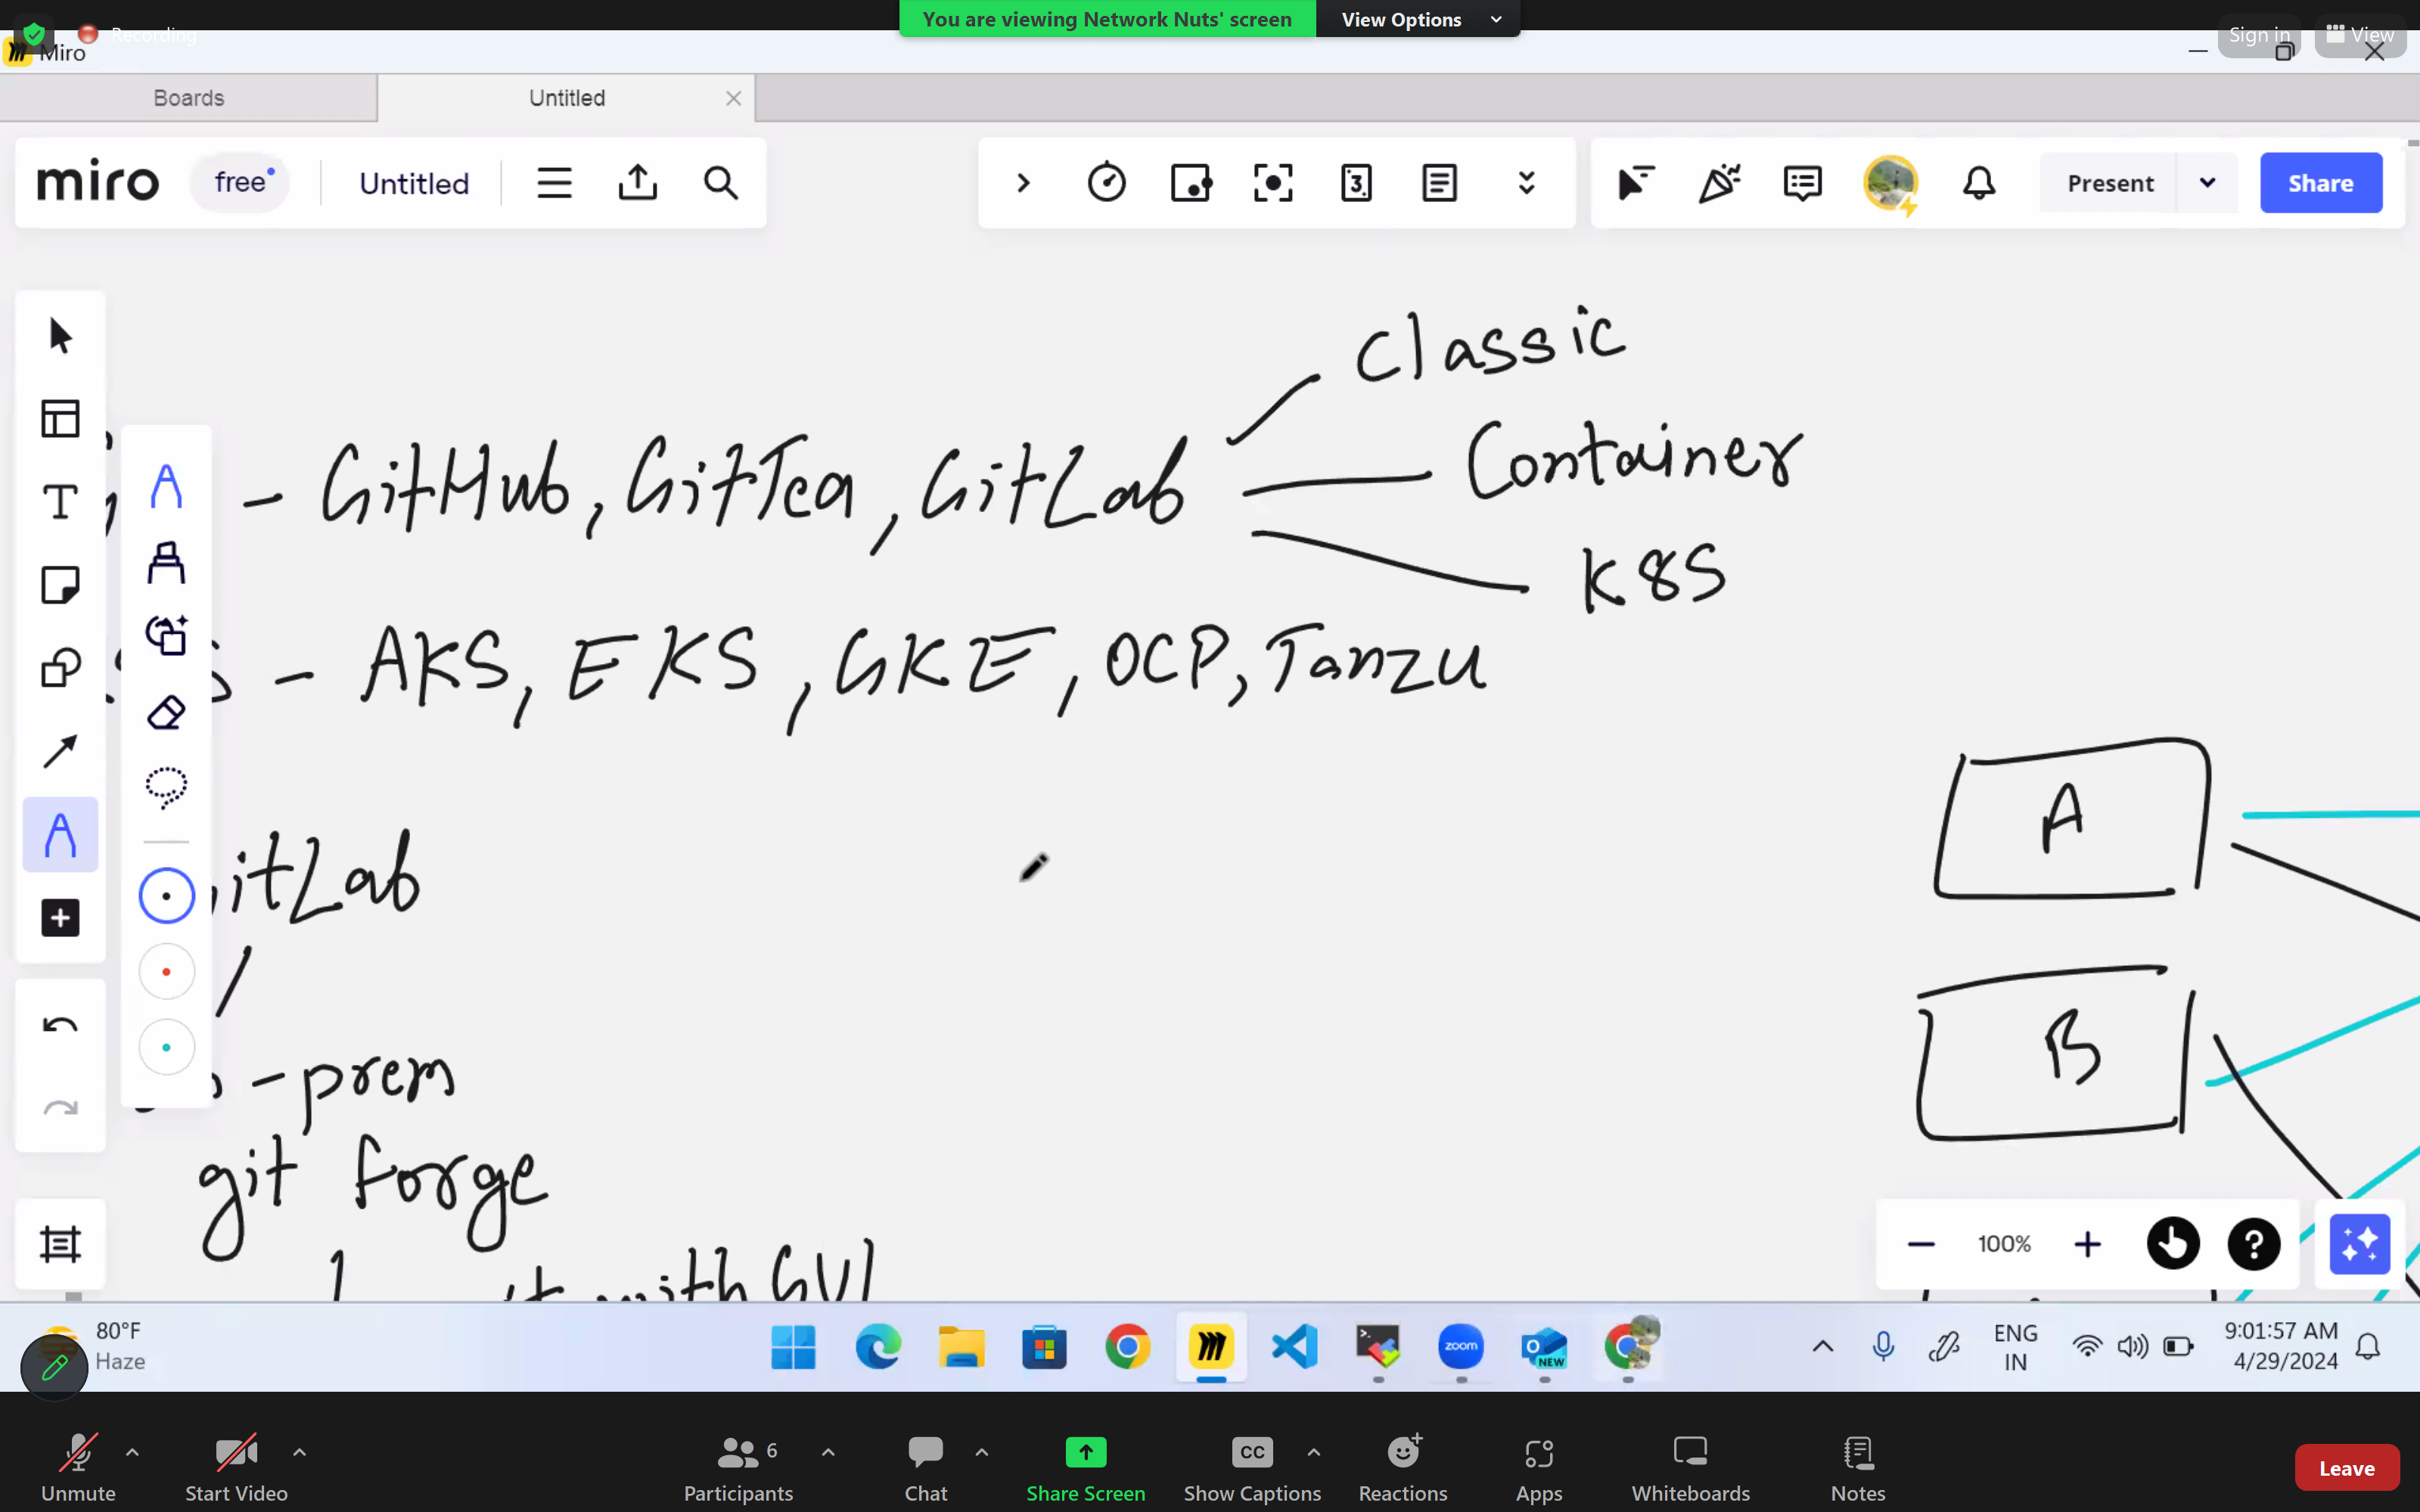 You are viewing Network Nuts' screen View Options
Recording
Sign in View
Miro
Boards Untitled
miro free Untitled Present Share
3
Classic
- GitHub, GitTea, GitLab
Container
K8S
- AKS, EKS, GKE, OCP, Tanzu
A
itLab
B
-prem
git forge
with GUI
100%
80°F
Haze
zoom
NEW
ENG
IN
9:01:57 AM
4/29/2024
6
CC
Unmute Start Video Participants Chat Share Screen Show Captions Reactions Apps Whiteboards Notes Leave